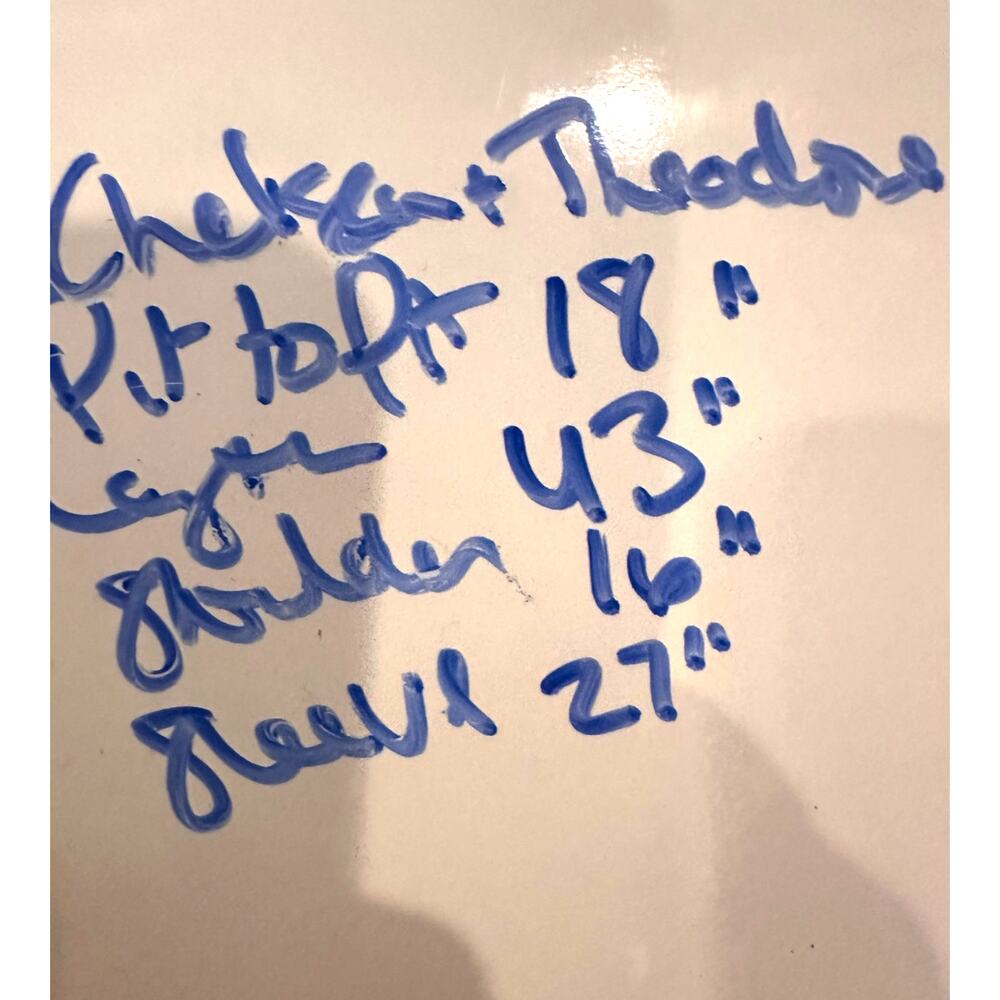 Chelsea + Theodore
Pit to Pit 18"
43"
Shoulder 16"
Sleeve 27"